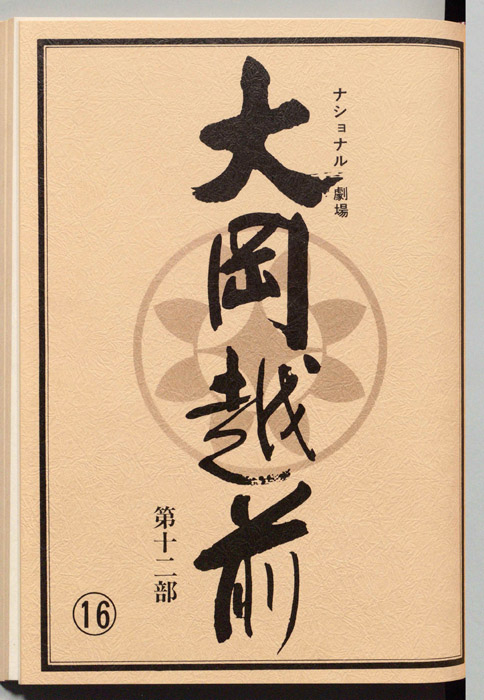 ナショナル劇場
大岡越前
第十二部
⑯